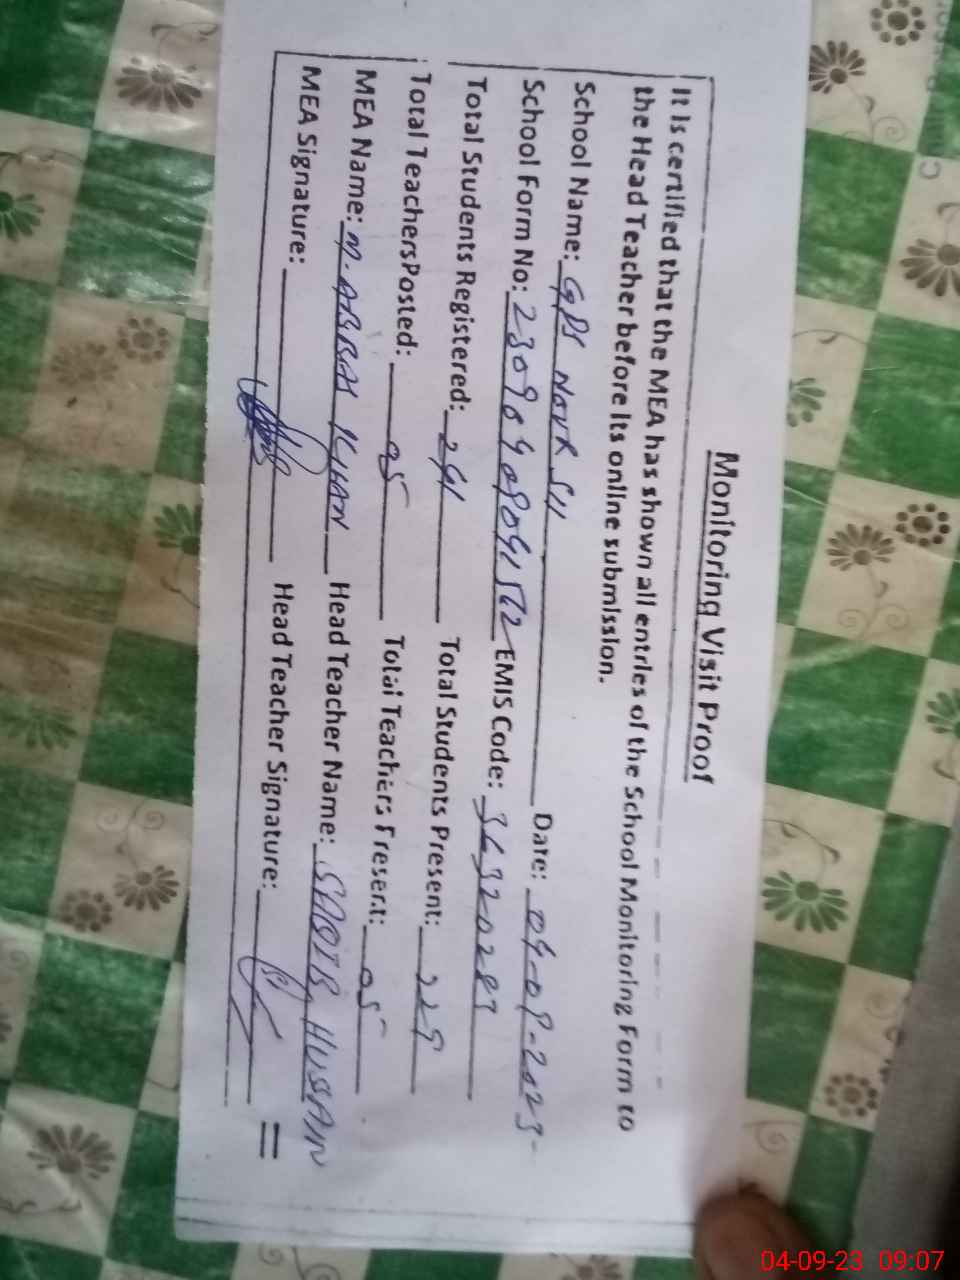 Monitoring Visit Proof
It is certified that the MEA has shown all entries of the School Monitoring Form to
the Head Teacher before its online submission.
School Name: GPS NOUR SH Date: 04-09-2023-
School Form No: EMIS Code: 36320283
Total Students Registered: 241 Total Students Present: 229
Total TeachersPosted: 05 Total Teachers Present: 05
MEA Name: M. ABBAS KHAN Head Teacher Name: SABIR HUSSAIN
MEA Signature: Head Teacher Signature:
04-09-23 09:07